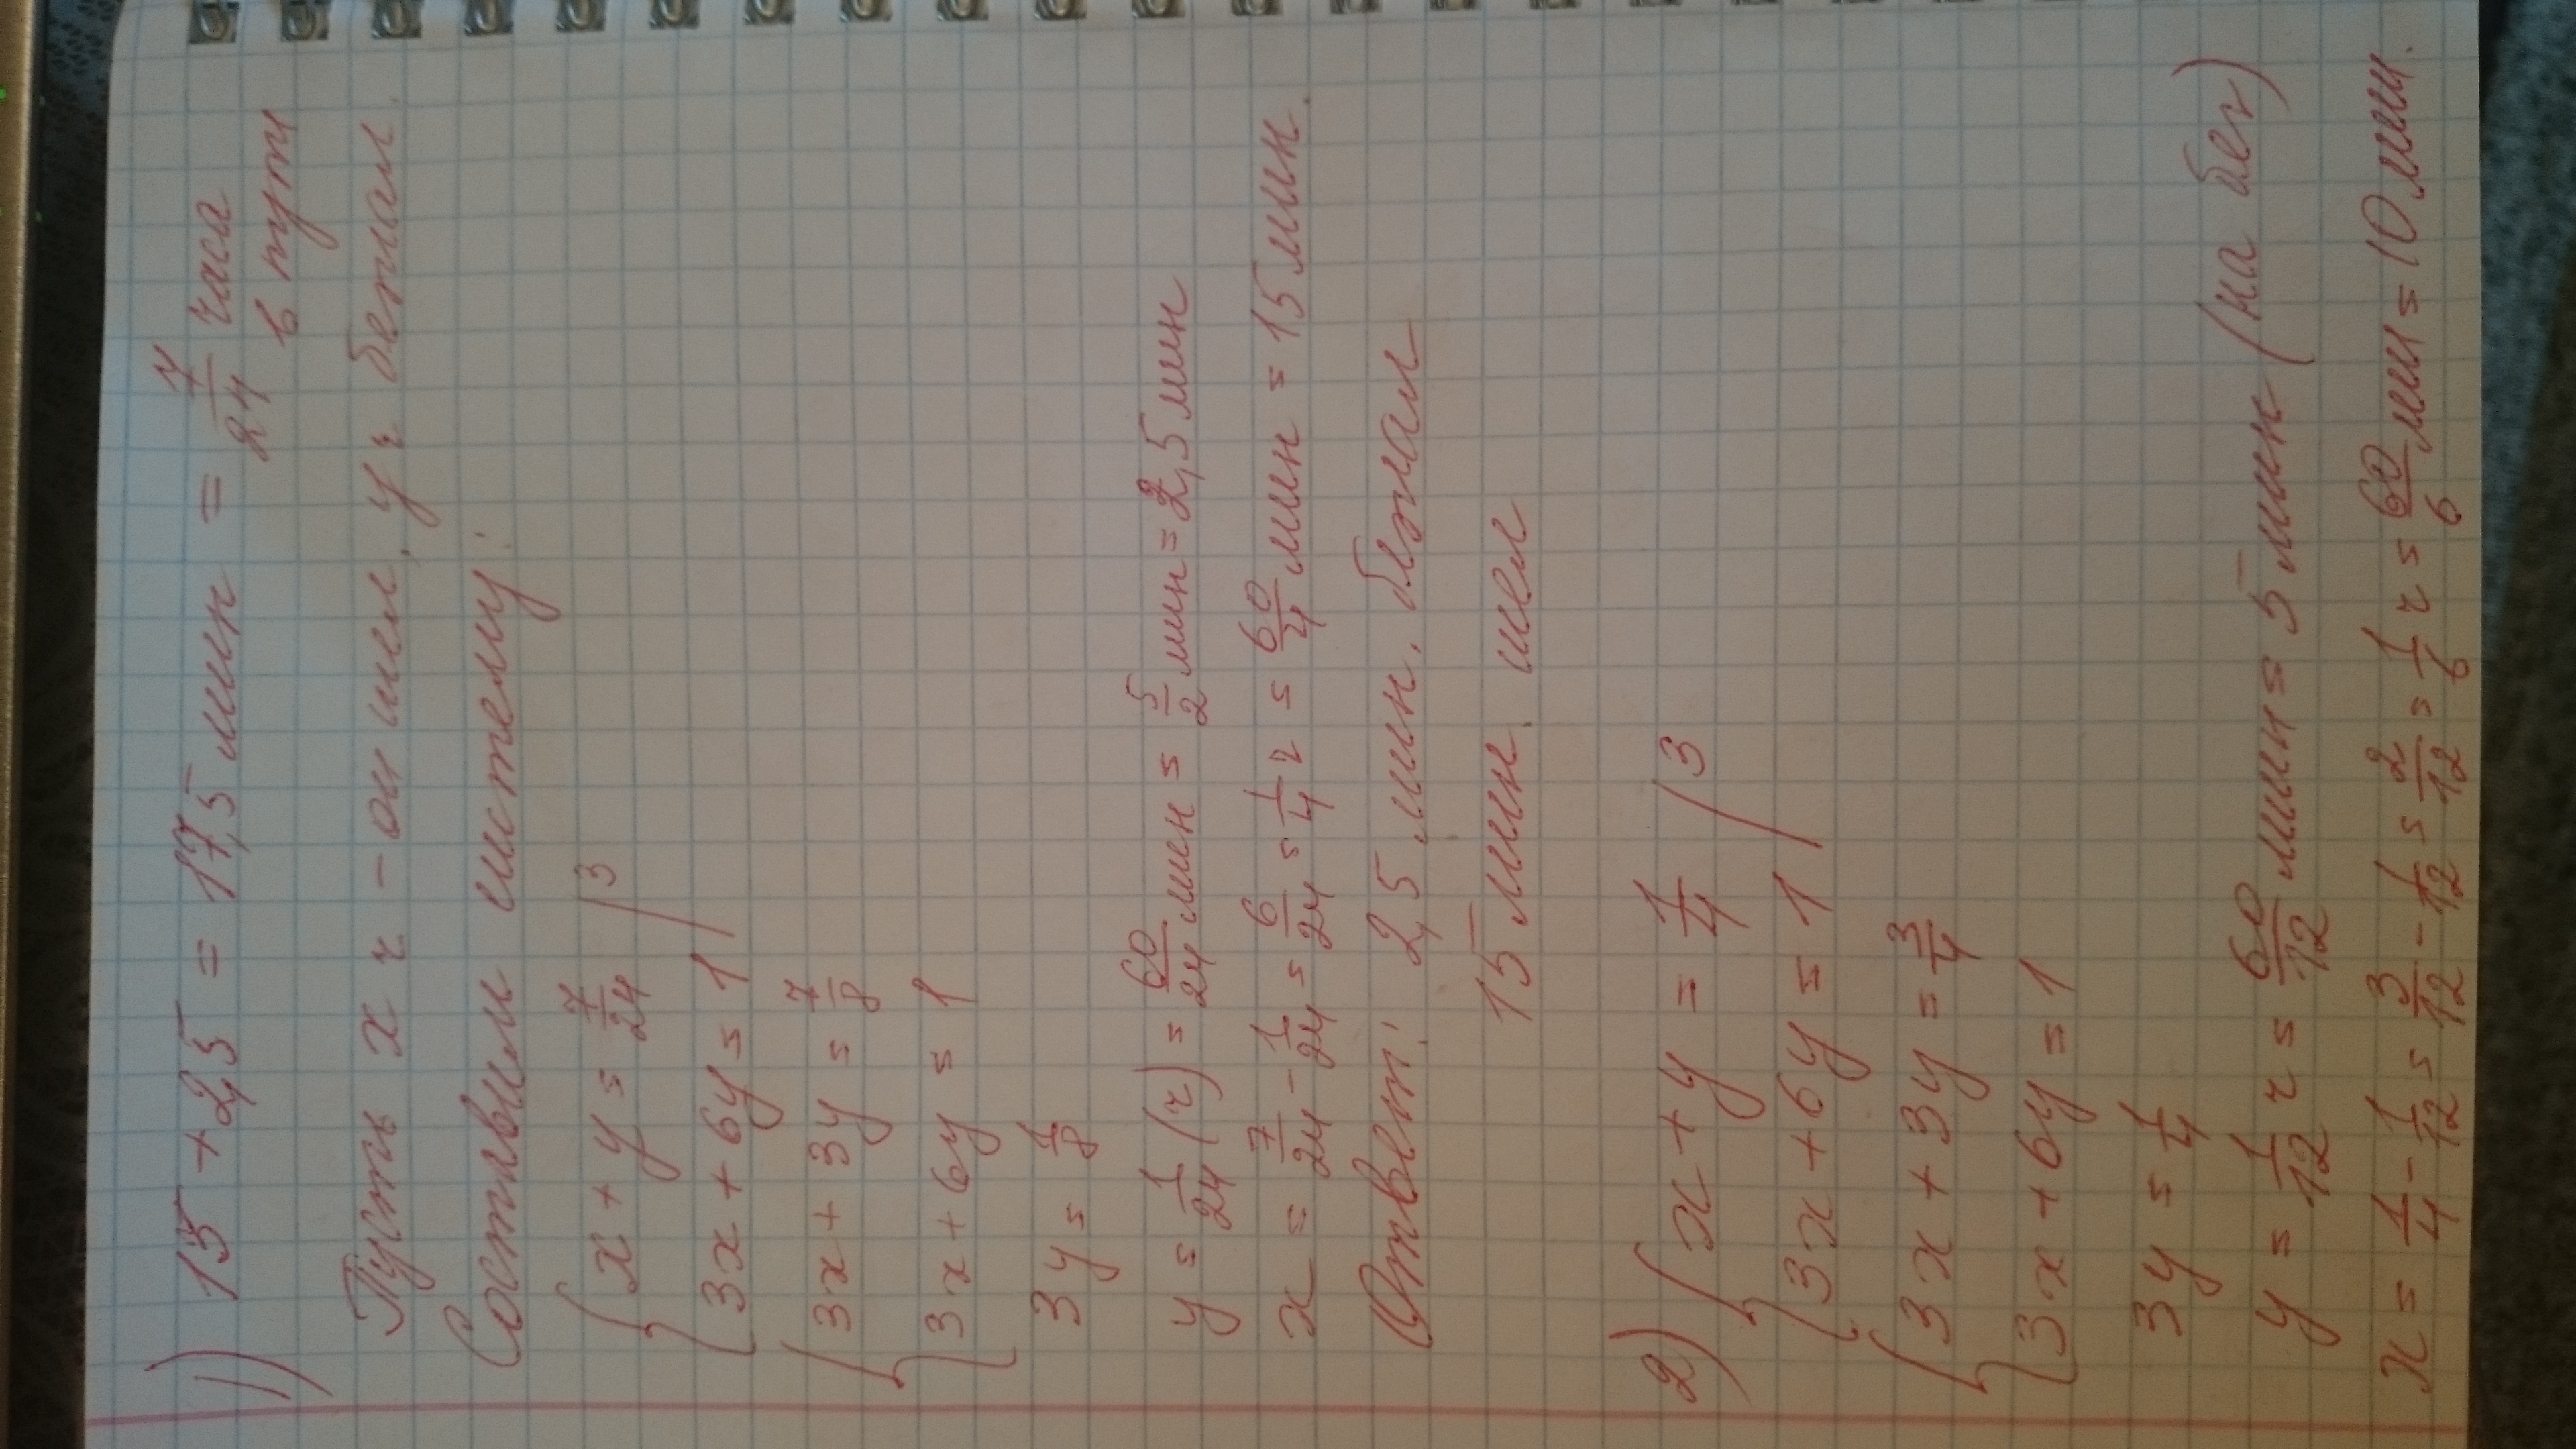 1) 15 + 2,5 = 17,5 мин = 7/24 часа
в пути
Пусть x ч - он шел, y ч бежал.
Составим систему:
{ x + y = 7/24 | 3
{ 3x + 6y = 1 |
{ 3x + 3y = 7/8
{ 3x + 6y = 1
3y = 1/8
y = 1/24 (ч) = 60/24 мин = 5/2 мин = 2,5 мин
x = 7/24 - 1/24 = 6/24 = 1/4 ч = 60/4 мин = 15 мин.
Ответ: 2,5 мин. бежал
15 мин. шел
2) { x + y = 1/4 | 3
{ 3x + 6y = 1 |
{ 3x + 3y = 3/4
{ 3x + 6y = 1
3y = 1/4
y = 1/12 ч = 60/12 мин = 5 мин (на бег)
x = 1/4 - 1/12 = 3/12 - 1/12 = 2/12 = 1/6 ч = 60/6 мин = 10 мин.